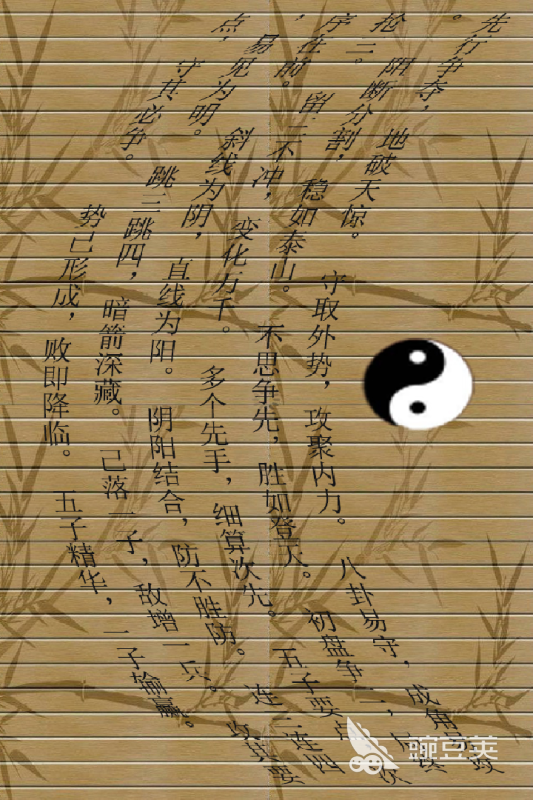 先行争夺,地破天惊。守取外势,攻聚内力。八卦易守,成角易攻
。阻断分割,稳如泰山。不思争先,胜如登天。初盘争二,终局
抢三。留三不冲,变化万千。多个先手,细算次先。五子要点,次
序在前。斜线为阴,直线为阳。阴阳结合,防不胜防。连三连四
,易见为明。跳三跳四,暗箭深藏。己落一子,敌增一兵。攻其要
点,守其必争。势己形成,败即降临。五子精华,一子输赢。
豌豆荚